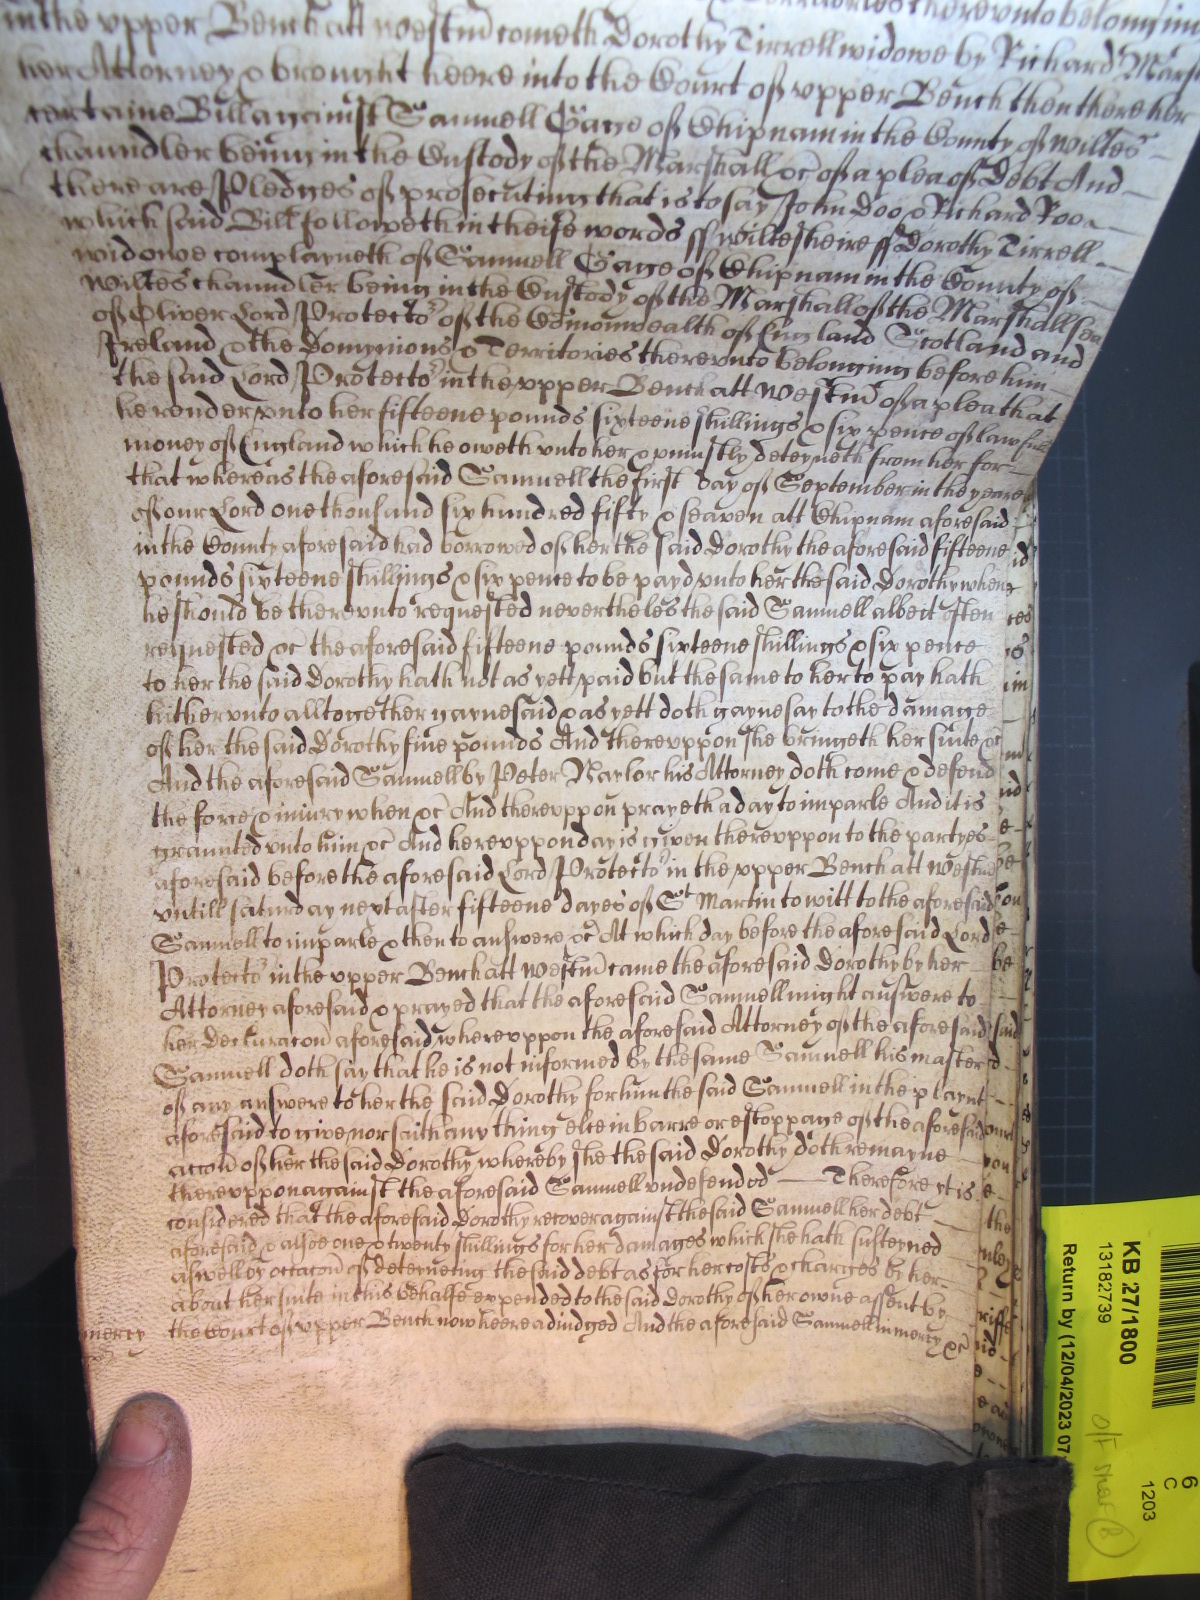 Territories therevnto belonging
in the vpper Bench att Westm̃ cometh Dorothy Tirrell widowe by Richard Mars
her Attorney & brought heere into the Court of vpper Bench then there her
certaine Bill against Samuell Gage of Chipnam in the County of Wiltes
chaundler being in the Custody of the Marshall &c̃ of a plea of Debt And
there are Pledges of prosecuting that is to say John Doo & Richard Roo
which said Bill followeth in theise words ss Wiltesheire ss Dorothy Tirrell
widowe complayneth of Samuell Gage of Chipnam in the County of
Wiltes chaundler being in the Custody of the Marshall of the Marshallsea
of Oliver Lord Protectoʳ of the Cõmonwealth of England Scotland and
Ireland & the Dominions & Territories therevnto belonging before him
the said Lord Protectoʳ in the vpper Bench att Westm̃ of a plea that
he render vnto her fifteene pounds sixteene shillings & six pence of lawfull
money of England which he oweth vnto her & vniustly deteyneth from her for
that whereas the aforesaid Samuell the first day of September in the yeare
of our Lord one thousand six hundred fifty & seaven att Chipnam aforesaid
in the County aforesaid had borrowed of her the said Dorothy the aforesaid fifteene
pounds sixteene shillings & six pence to be payd vnto her the said Dorothy when
he should be therevnto requested neverthelés the said Samuell albeit often
requested &c̃ the aforesaid fifteene pounds sixteene shillings & six pence
to her the said Dorothy hath not as yett paid but the same to her to pay hath
hitherunto alltogether gaynesaid & as yett doth gaynesay to the damage
of her the said Dorothy five pounds And therevppon she bringeth her suite &c̃
And the aforesaid Samuell by Peter Naylor his Attorney doth come & defend
the force & iniury when &c̃ And therevppon prayeth a day to imparle And it is
graunted vnto him &c̃ And herevppon day is given therevppon to the partyes
aforesaid before the aforesaid Lord Protectoʳ in the vpper Bench att Westm̃
vntill saturday next after fifteene dayes of Sᵗ Martin to witt to the aforesaid
Samuell to imparle & then to answere &c̃ At which day before the aforesaid Lord
Protectoʳ in the vpper Bench att Westm̃ came the aforesaid Dorothy by her
Attorney aforesaid & prayed that the aforesaid Samuell might answere to
her declaracoñ aforesaid wherevppon the aforesaid Attorney of the aforesaid
Samuell doth say that he is not informed by the same Samuell his master
of any answere to her the said Dorothy for him the said Samuell in the playnt
aforesaid to give nor saith any thing else in barre or estoppage of the aforesaid
accoñ of her the said Dorothy whereby she the said Dorothy doth remayne
therevppon against the aforesaid Samuell vndefended — Therefore yt is
considered that the aforesaid Dorothy recover against the said Samuell her debt
aforesaid & alsoe one & twenty shillings for her damages which she hath susteyned
aswell by occacoñ of deteyneing the said debt as for her costs & charges by her
about her suite in this behalfe expended to the said Dorothy of her owne assent by
mercy the Court of vpper Bench now heere adiudged And the aforesaid Samuell in mercy
&c̃
KB 27/1800
13182739
Return by (12/04/2023 07
6
C
1203